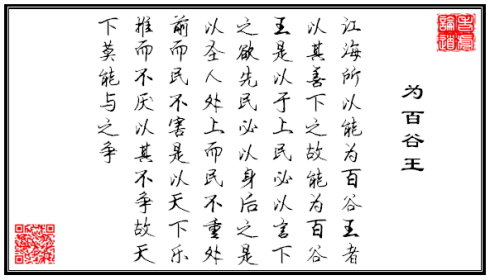 为百谷王
江海所以能为百谷王者
以其善下之故能为百谷
王是以于上民必以言下
之欲先民必以身后之是
以圣人处上而民不重处
前而民不害是以天下乐
推而不厌以其不争故天
下莫能与之争
論道